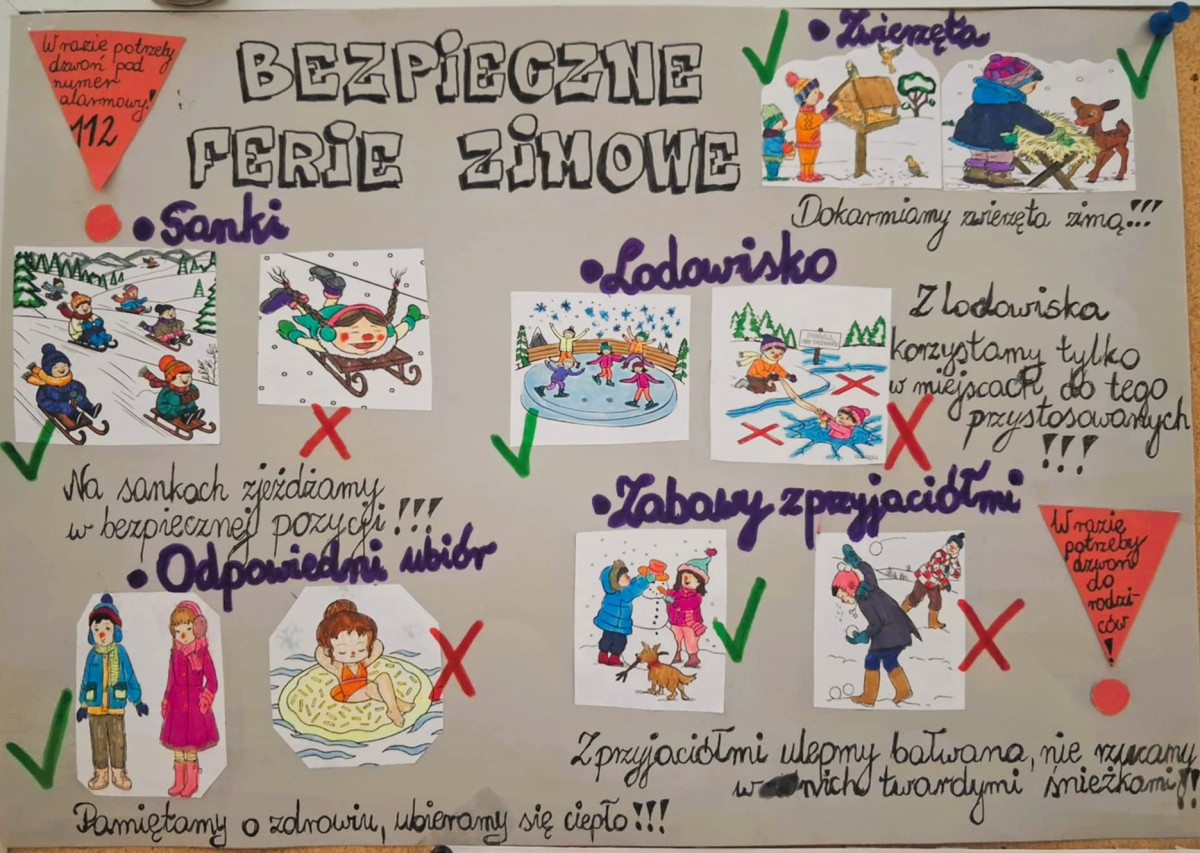 W razie potrzeby
dzwoń pod
numer
alarmowy!
112
BEZPIECZNE
FERIE ZIMOWE
• Zwierzęta
Dokarmiamy zwierzęta zimą!!!
• Sanki
Na sankach zjeżdżamy
w bezpiecznej pozycji!!!
• Lodowisko
Z lodowiska
korzystamy tylko
w miejscach do tego
przystosowanych
!!!
• Odpowiedni ubiór
Pamiętamy o zdrowiu, ubieramy się ciepło!!!
• Zabawy z przyjaciółmi
Z przyjaciółmi ulepmy bałwana, nie rzucamy
w nich twardymi śnieżkami!!
W razie
potrzeby
dzwoń
do
rodzi-
ców
!